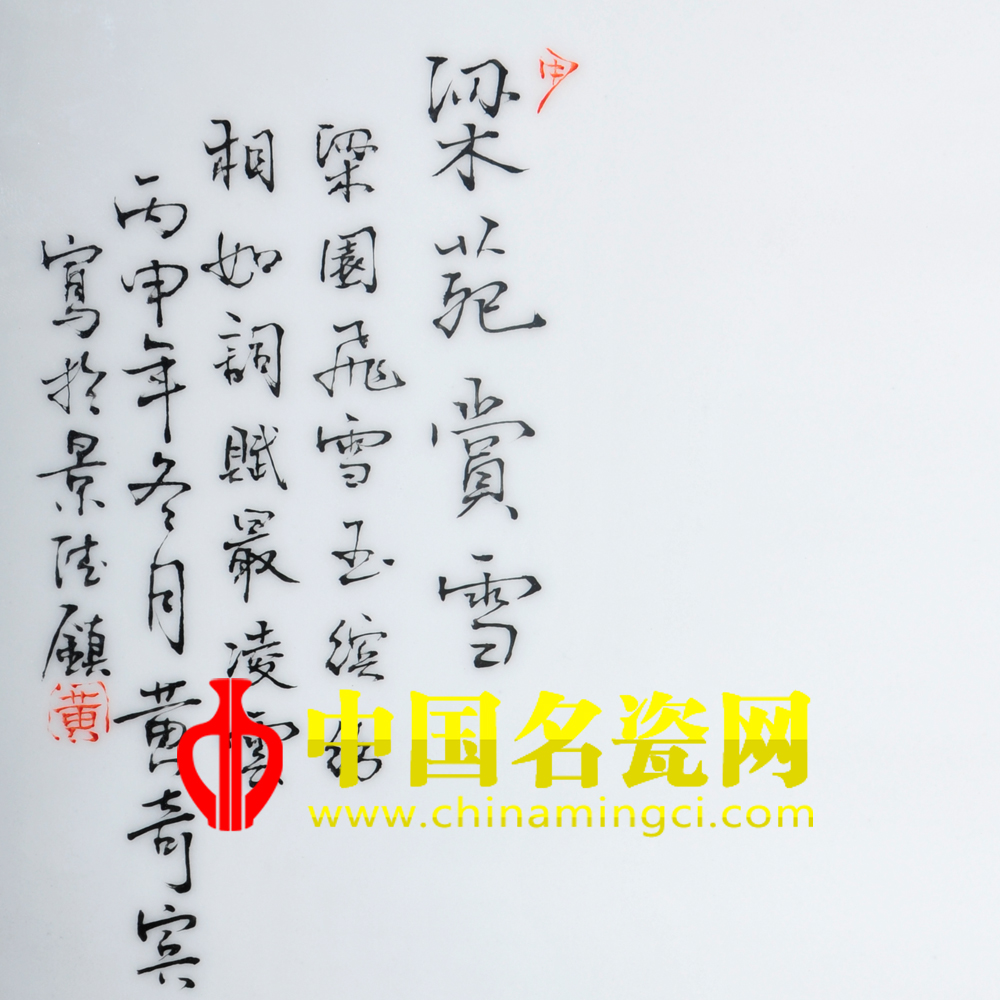 申
梁苑賞雪
梁園飛雪玉繽紛
相如詞賦最凌雲
丙申年冬月黄奇宾
寫於景德鎮
黄
中国名瓷网
www.chinamingci.com